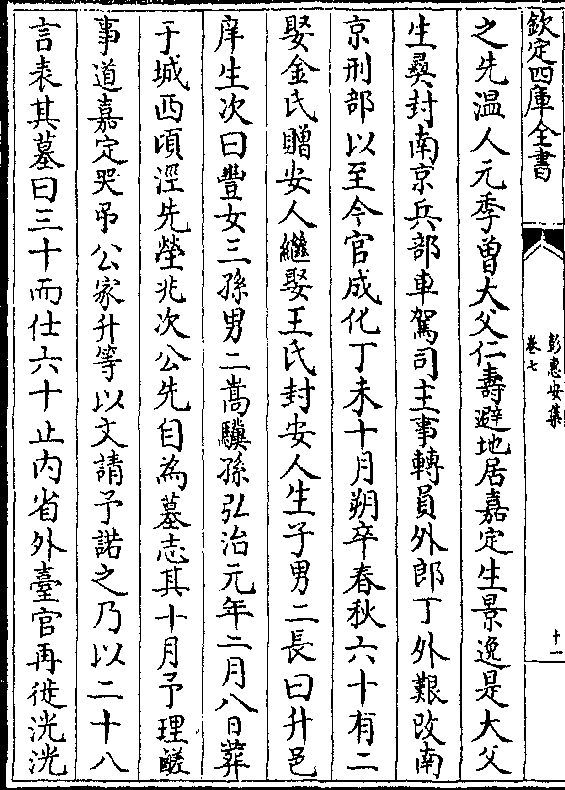 欽定四庫全書
彭惠安集
卷七
十一
之先溫人元季曽大父仁壽避地居嘉定生景逸是大父
生彛封南京兵部車駕司主事轉員外郎丁外艱改南
京刑部以至今官成化丁未十月朔卒春秋六十有二
娶金氏贈安人繼娶王氏封安人生子男二長曰升邑
庠生次曰豐女三孫男二嵩驥孫弘治元年二月八日葬
于城西頃涇先塋兆次公先自為墓志其十月予理鹺
事道嘉定哭弔公家升等以文請予諾之乃以二十八
言表其墓曰三十而仕六十止内省外臺官再徙洸洸